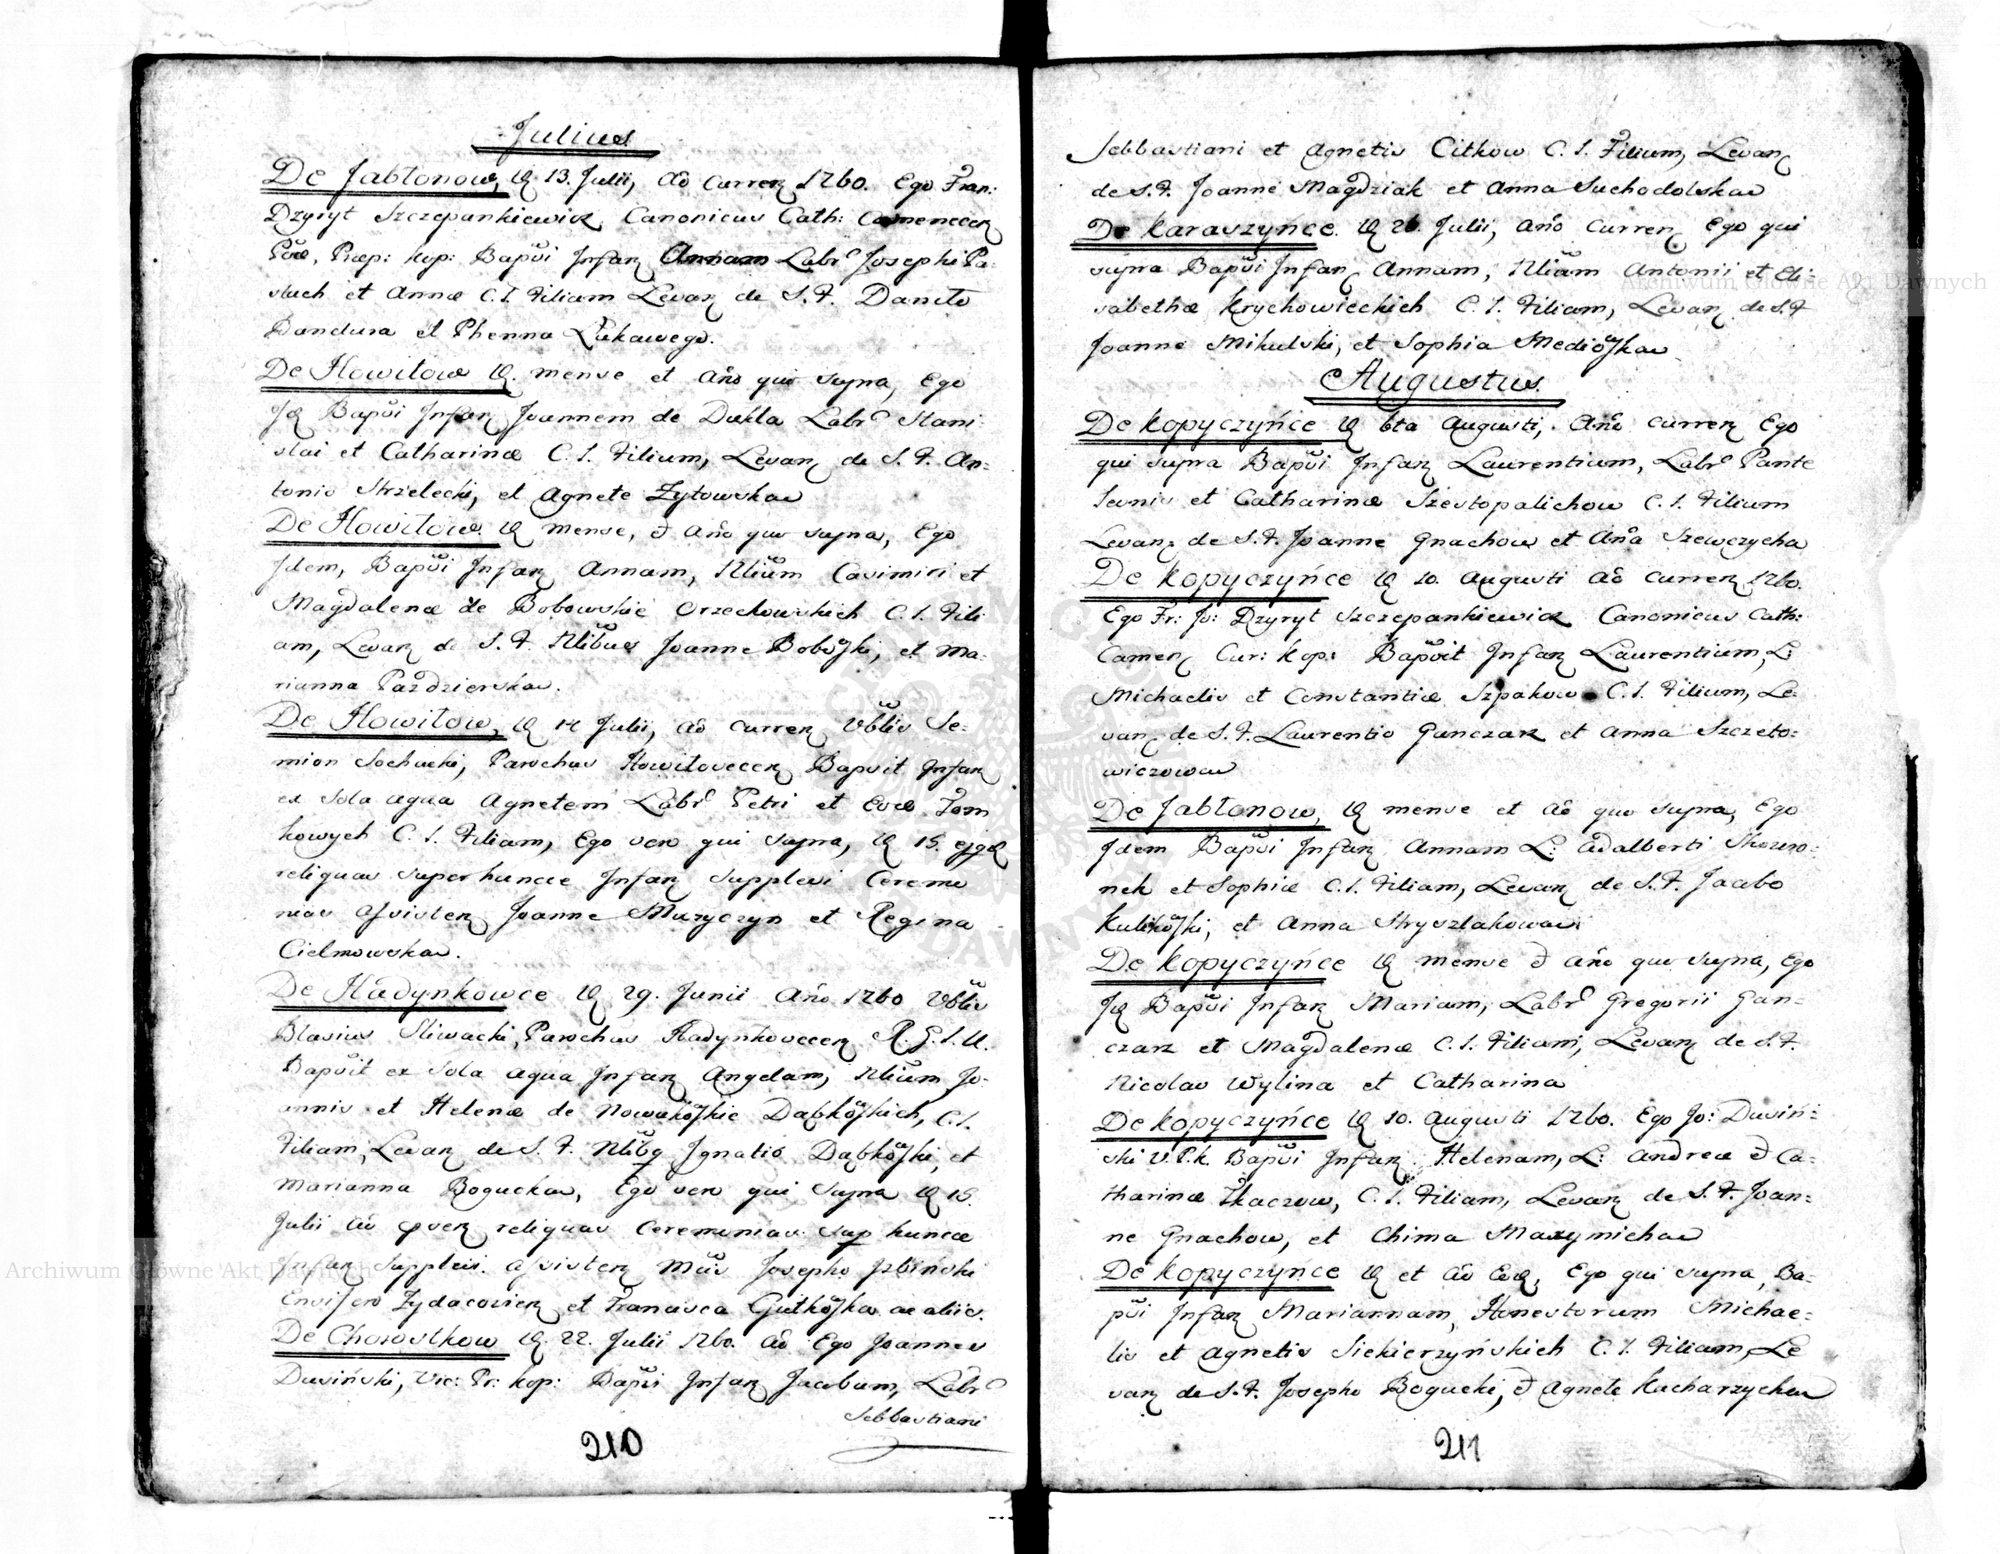 Julius
De Jabłonow, 13. Julii, Ao Curren 1760. Ego Fran:
Dzyryt Szczepankiewicz Canonicus Cath: Camenecen
Præp: Kop: Bapvi Infan Annam Labr Josephi Pa-
stuch et Annæ C. I. Filiam Levan de S. F. Daniło
Dandura et Phenna Łukawego.
De Howiłow mense et Ano quo supra, Ego
Bapvi Infan Joannem de Dukla Labr Stani
slai et Catharinæ C. I. Filium, Levan de S. F. An-
tonio Strzelecki, et Agnete Zytowska
De Howiłow mense, Ano quo supra, Ego
Idem, Bapvi Infan Annam, Nlium Casimiri et
Magdalenæ de Bobowskie Orzechowskich C. I. Fili
am, Levan de S. F. Nlibus Joanne Bobowski, et Ma-
rianna Pazdzierska.
De Howiłow, 14 Julii, Ao Curren Vblis Se-
mion Sochacki, Parochus Howiłovecen Bapvit Infan
ex sola aqua Agnetem Labr Petri et Evæ Tom
kowych C. I. Filiam, Ego vero qui supra, 15.
reliquas super hance Infan supplevi Ceremo
nias assisten Joanne Muzyczyn et Regina
Cielmowska.
De Hadynkowce 29. Junii Ano 1760 Vblis
Blasius Sliwacki, Parochus Hadynkovecen R. G. S. U.
Bapvit ex sola aqua Infan Angelam, Nlium Jo-
annis et Helenæ de Nowakowskie Dąbkowskich, C. I.
Filiam, Levan de S. F. Nlibq Ignatio Dąbkowski, et
Marianna Bogucka, Ego vero qui supra 15.
Julii Ao reliquas Ceremonias sup hance
Infan supplevi. Assisten Josepho Izbiński
Ensifero Zydacovien et Francisca Gutkowska ac aliis.
De Chorostkow 22. Julii 1760. Ao Ego Joannes
Dusiński, Vic: Pr: Kop: Bapvi Infan Jacobum, Labr
Sebbastiani
210
Sebbastiani et Agnetis Citkow C. I. Filium, Levan
de S. F. Joanne Magdziak et Anna Suchodolska
De Karaszyńce 26. Julii, Ano Curren Ego qui
supra Bapvi Infan Annam, Nlium Antonii et Eli-
sabethæ Krychowieckich C. I. Filiam, Levan de S. F.
Joanne Mikulski, et Sophia
Augustus
De Kopyczyńce 6ta Augusti, Ano Curren Ego
qui supra Bapvi Infan Laurentium, Labr Pante
lemis et Catharinæ Szestopalichow C. I. Filium
Levan de S. F. Joanne Gnachow et Ana Szewczycha
De Kopyczyńce 10. Augusti Ao Curren 1760.
Ego Fr: Jo: Dzyryt Szczepankiewicz Canonicus Cath:
Camen Cur: Kop: Bapvit Infan Laurentium, L:
Michaelis et Constantiæ Szpakow C. I. Filium, Le-
van de S. F. Laurentio Ganczarz et Anna Szczeto-
wiczowa
De Jabłonow, mense et Ao quo supra, Ego
Idem Bapvi Infan Annam L: Adalberti Skowro-
nek et Sophiæ C. I. Filiam, Levan de S. F. Jacobo
Kulikowski, et Anna Stryszlakowa
De Kopyczyńce mense Ano quo supra, Ego
Bapvi Infan Mariam, Labr Gregorii Gan-
czarz et Magdalenæ C. I. Filiam, Levan de S. F.
Nicolao Wylina et Catharina
De Kopyczyńce 10. Augusti 1760. Ego Jo: Dusiń-
ski V. P. K. Bapvi Infan Helenam, L: Andreæ Ca-
tharinæ Tkaczow, C. I. Filiam, Levan de S. F. Joan-
ne Gnachow, et Chima Maxymicha
De Kopyczyńce et Ao Ego qui supra, Ba-
pvi Infan Mariannam, Honestorum Michae-
lis et Agnetis Siekierzyńskich C. I. Filiam, Le
van de S. F. Josepho Bogucki, Agnete Kucharzycha
211
Archiwum Główne Akt Dawnych
Archiwum Główne Akt Dawnych